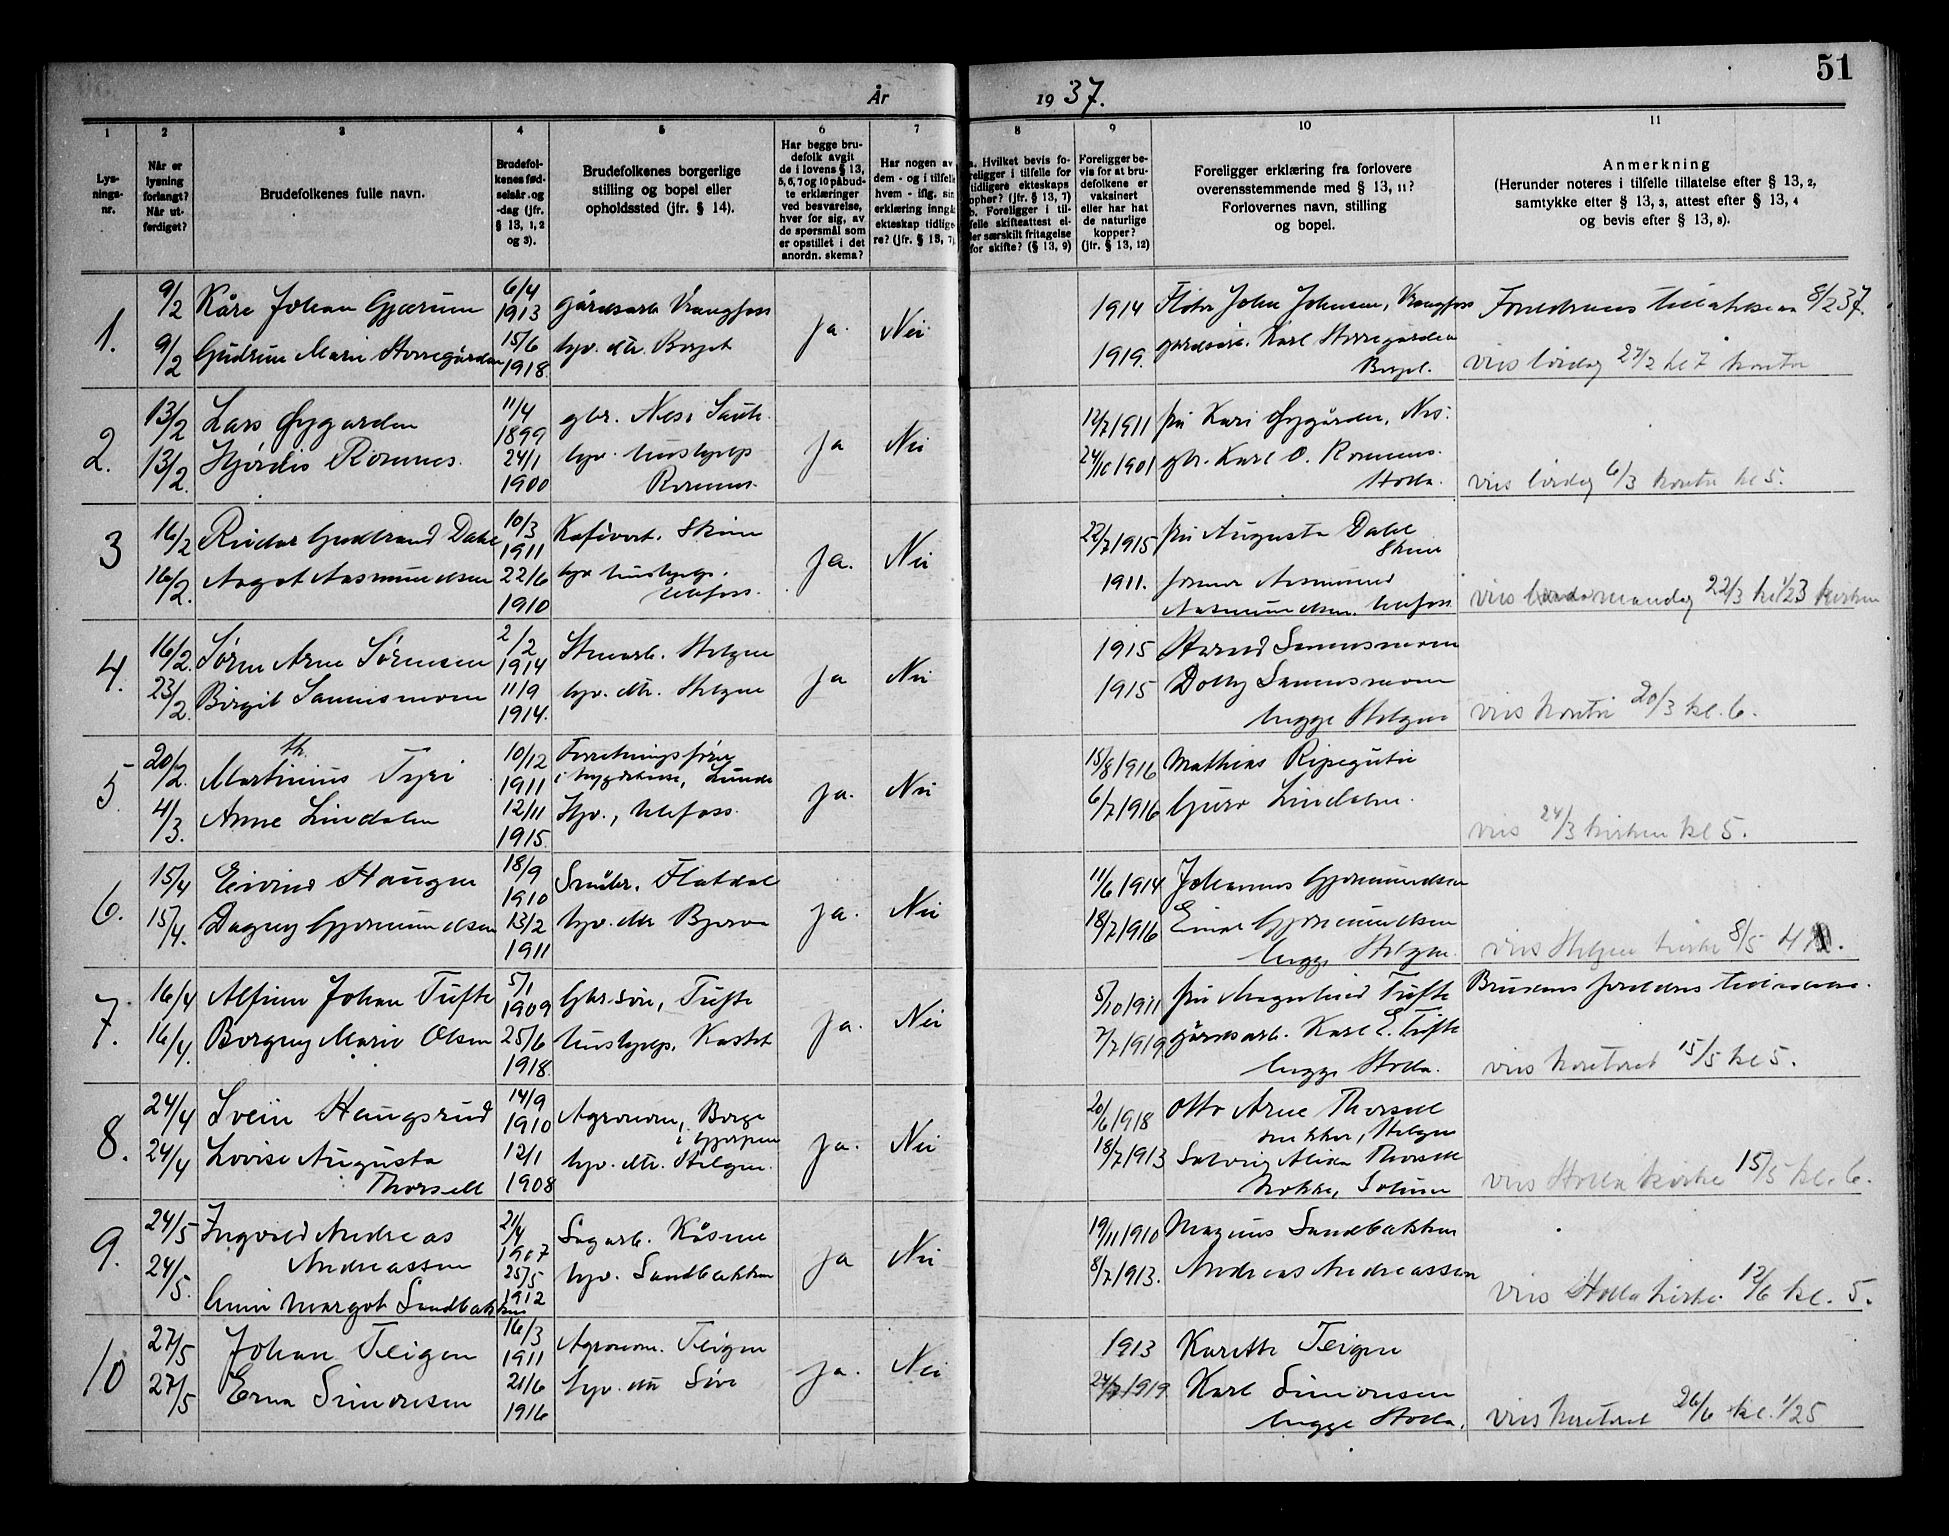 51
År 1937.
1 2 3 4 5 6 7 8 9 10 11
Lysnings-nr.
Når er lysning forlangt? Når ut-ferdiget?
Brudefolkenes fulle navn.
Brudefol-kenes fød-selsår og -dag (jfr. § 13, 1, 2 og 3).
Brudefolkenes borgerlige stilling og bopel eller opholdssted (jfr. § 14).
Har begge bru-defolk avgit de i lovens § 13, 5, 6, 7 og 10 påbud-te erklæringer ved besvarelse, hver for sig, av de spørsmål som er opstillet i det anordn. skema?
Har nogen av dem - og i tilfelle hvem - iflg. sin erklæring inngå ekteskap tidlige-re? (jfr. § 13, 7)
a. Hvilket bevis fo-religger i tilfelle for tidligere ekteskaps ophør? (jfr. § 13, 7) b. Foreligger i til-felle skifteattest el-ler særskilt fritagelse for skifte? (§ 13, 9)
Foreligger be-vis for at bru-defolkene er vaksinert eller har hat de naturlige kopper? (jfr. § 13, 12)
Foreligger erklæring fra forlovere overensstemmende med § 13, 11? Forlovernes navn, stilling og bopel.
Anmerkning (Herunder noteres i tilfelle tillatelse efter § 13, 2, samtykke efter § 13, 3, attest efter § 13, 4 og bevis efter § 13, 8).
1. 9/2 Kåre Johan Gjærum 6/4 1913 gårdsarb. Vrangfoss ja. Nei 1914 Fløter John Johnsen, Vrangfoss 8/2 37.
9/2 Gudrun Marie Storregården 15/6 1918 hjv. dtr. 1919. Karl Storregården
viss lørdag 27/2 kl 7 kontor
2. 13/2 Lars Øygarden 11/4 1899 gbr. Nes i Sauh. ja Nei 12/7 1911 fru Kari Øygården, Nes.
13/2 Hjørdis Romnes. 24/1 1900 hjv. hushjelp Romnes. 24/10 1901 gbr. Karl O. Romnes. Holla.
viss lørdag 6/3 kontor kl 5.
3 16/2 Reidar Gudbrand Dahl 10/3 1911 Skien ja. Nei 22/7 1915 fru Augusta Dahl Skien
16/2. Aagot Aasmundsen 22/6 1910 Ulefoss. 1911. Aasmund Aasmundsen. Ulefoss
viss mandag 22/3 kl 1/2 3 kirken
4. 16/2. Søren Arne Sørensen 2/2 1914 Stenarb. Helgen ja Nei 1915 Harald Sannesmoen
23/2. Birgit Sannesmoen 11/9 1914. hjv. dtr. Helgen 1915 Dolly Sannesmoen begge Helgen
viss kontor 20/3 kl. 6.
5 20/2. Marthinius Tyri 10/12 1911 Forretningsfører i bygdehuse, Lunde ja. Nei 15/8 1916 Mathias Ripegutu
4/3. Anne Lindalen 12/11 1915. Hjv., Ulefoss. 6/7 1916 Guro Lindalen.
viss 24/3 kirken kl 5.
6. 15/4 Eivind Haugen 18/9 1910 Småbr. Flatdal ja. Nei 11/6 1914 Johannes Gjermundsen
15/4. Dagny Gjermundsen 13/2 1911 hjv. dtr 18/7 1916 Einar Gjermundsen begge Helgen.
viss Helgen kirke 8/5 4.
7. 16/4 Alfinn Johan Tufte 5/1 1909 Gbr. søn, Tufte ja. Nei 5/10 1911 fru Tufte
16/4. Borgny Marie Olsen 25/6 1918. hushjelp, Kastet 7/7 1919 gårdsarb. Karl E. Tufte begge Holla.
Brudens foreldres
viss kontoret 15/5 kl 5.
8. 24/4 Svein Haugsrud 14/9 1910 Agronom, Borge i Gjerpen ja. Nei 20/6 1918 Otto Arne Thorsell snekker, Helgen
24/4 Lovise Augusta Thorsell 12/1 1908 hjv. dtr. Helgen. 18/7 1913 Solveig Alida Thorsell kokke, Solum
viss Holla kirke 15/5 kl. 6.
9. 24/5 Ingvald Andreas Andreassen 21/4 1907 Sagarb. Kåsene ja Nei 19/11 1910 Magnus Sandbakken
24/5. Anni Margot Sandbakken 25/5 1912 hjv. Sandbakken 8/7 1913. Andreas Andreassen
viss Holla kirke. 12/6 kl. 5.
10 27/5 Johan Teigen 16/3 1911 Agronom. Teigen ja. Nei 1913 Karette Teigen
27/5 Erna Simonsen 21/6 1916 hjv. dtr Søve 24/7 1919 Karl Simonsen begge Holla.
viss kontoret 26/6 kl. 1/2 5